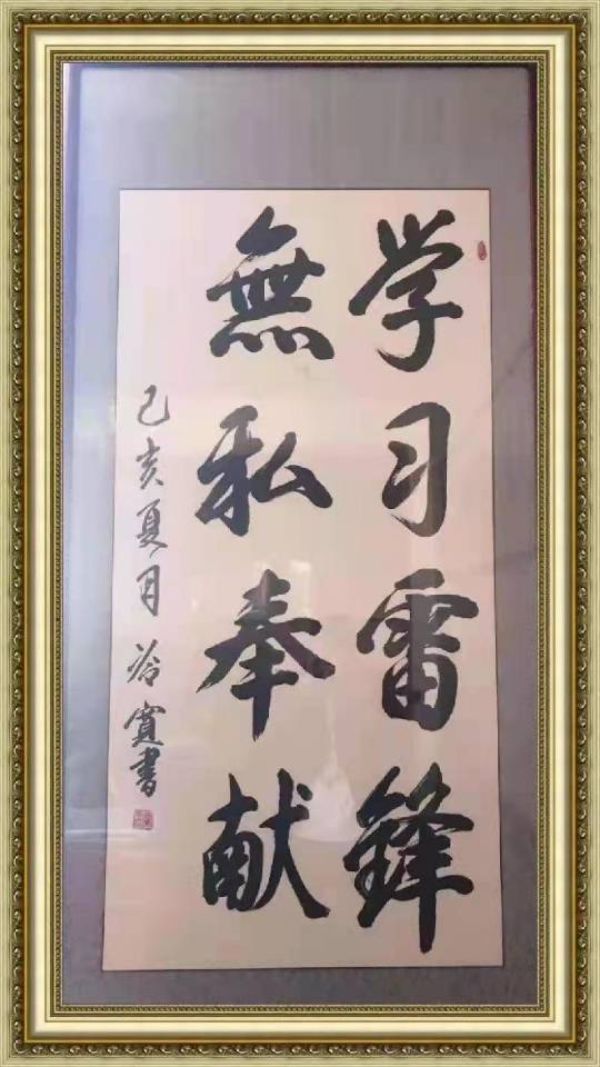 学习雷锋
無私奉献
己亥夏月 冷寬書